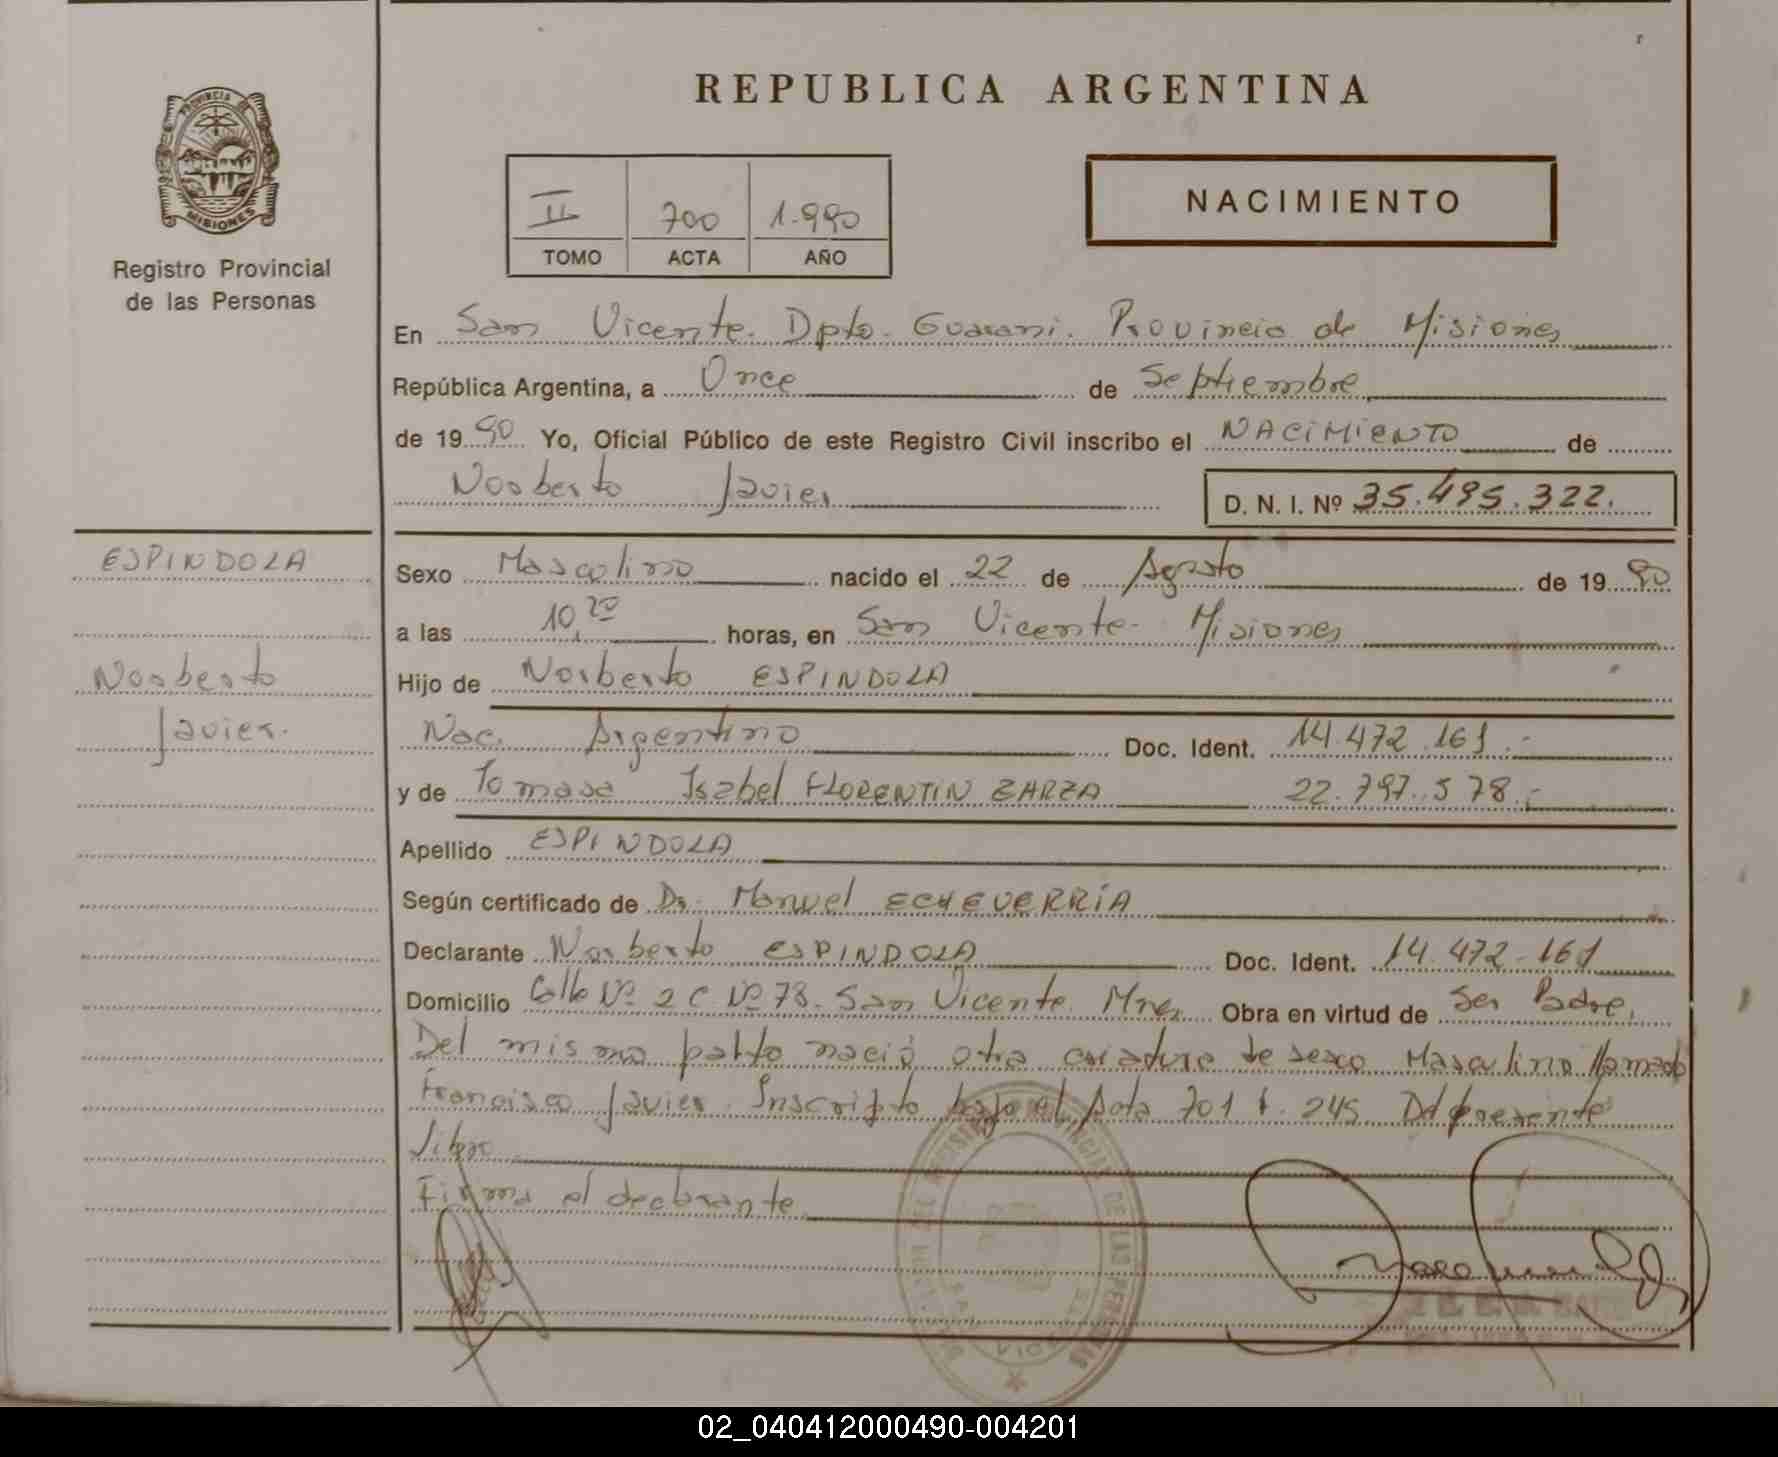 PROVINCIA DE
MISIONES
Registro Provincial
de las Personas
REPUBLICA ARGENTINA
II 700 1.990
TOMO ACTA AÑO
NACIMIENTO
En San Vicente. Dpto. Guarani. Provincia de Misiones
República Argentina, a Once de Septiembre
de 1990 Yo, Oficial Público de este Registro Civil inscribo el NACIMIENTO de
Norberto Javier D. N. I. Nº 35.495.322.
ESPINDOLA
Norberto
Javier.
Sexo Masculino nacido el 22 de Agosto de 1990
a las 10 20 horas, en San Vicente- Misiones
Hijo de Norberto ESPINDOLA
Nac. Argentino Doc. Ident. 14.472.161.-
y de Tomasa Isabel FLORENTIN ZARZA 22.797.578.-
Apellido ESPINDOLA
Según certificado de Dr. Manuel ECHEVERRÍA
Declarante Norberto ESPINDOLA Doc. Ident. 14.472.161
Domicilio Calle Nº 2 C Nº 78. San Vicente. Mnes Obra en virtud de Ser Padre.
Del mismo parto nació otra criatura de sexo Masculino llamado
Francisco Javier. Inscripto bajo el Acta 701 f. 245 Del presente
libro
Firma el declarante
DEL REGISTRO PROVINCIAL DE LAS PERSONAS
SAN VICENTE
02_040412000490-004201